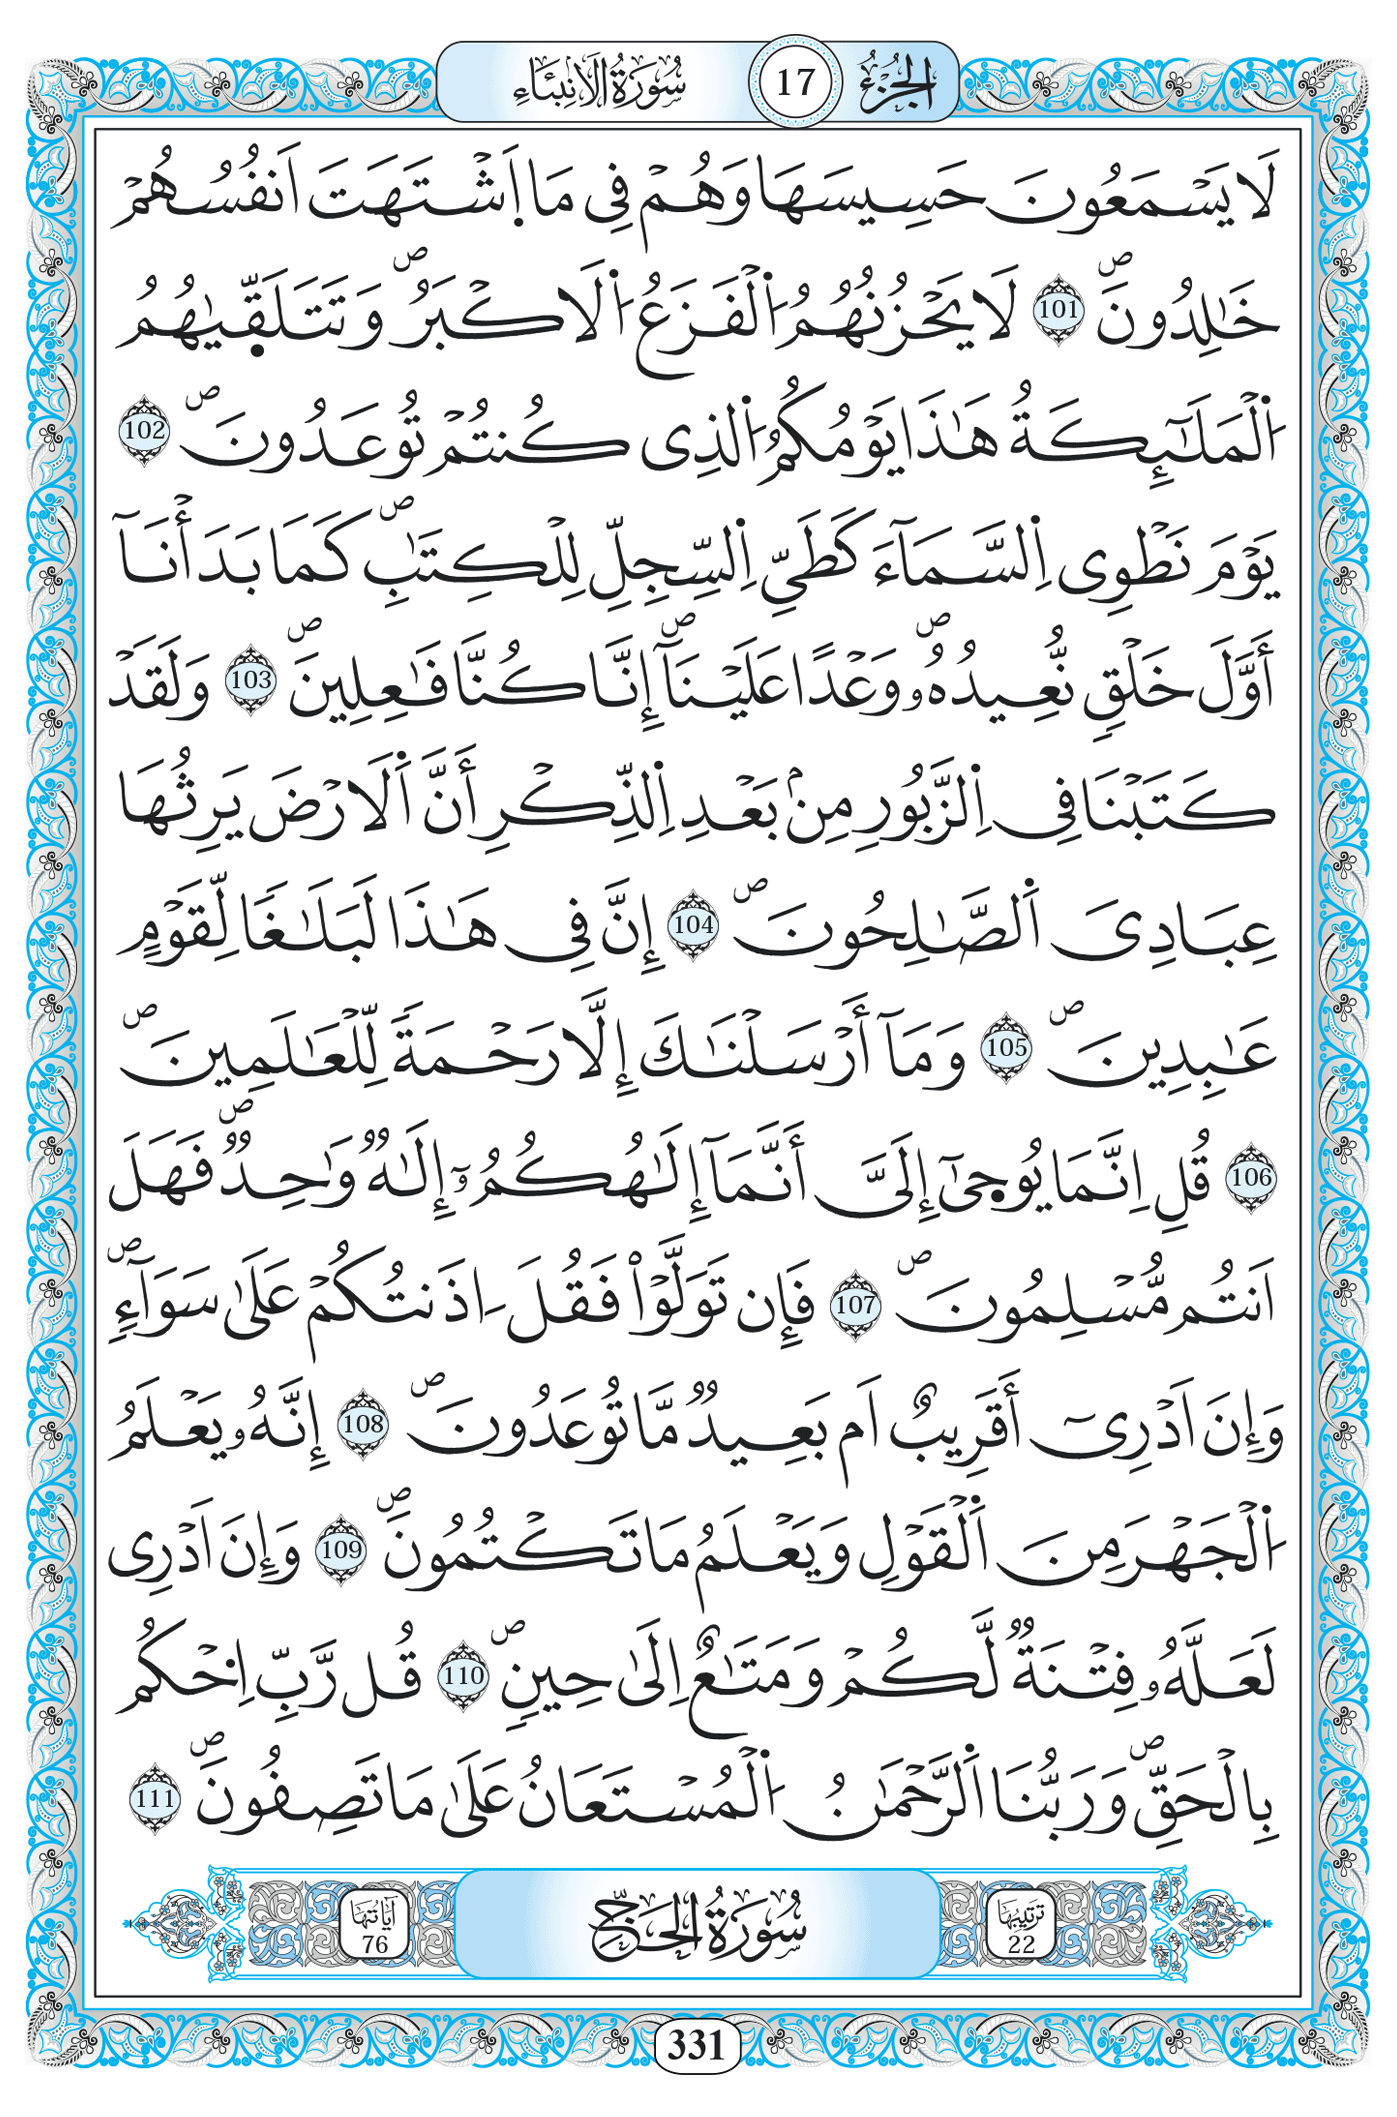 الجزء 17 سورة الانبياء
لَا يَسْمَعُونَ حَسِيسَهَا وَهُمْ فِى مَا اَ۪شْتَهَتَ اَنفُسُهُمْ
خَٰلِدُونَۖ 101 لَا يَحْزُنُهُمُ اُ۬لْفَزَعُ اُ۬لَاكْبَرُۖ وَتَتَلَقّ۪يٰهُمُ
اُ۬لْمَلَٰٓئِكَةُ هَٰذَا يَوْمُكُمُ اُ۬لذِى كُنتُمْ تُوعَدُونَۖ 102
يَوْمَ نَطْوِى اِ۬لسَّمَآءَ كَطَيِّ اِ۬لسِّجِلِّ لِلْكِتَٰبِۖ كَمَا بَدَأْنَآ
أَوَّلَ خَلْقٖ نُّعِيدُهُۥۖ وَعْداً عَلَيْنَآۖ إِنَّا كُنَّا فَٰعِلِينَۖ 103 وَلَقَدْ
كَتَبْنَا فِى اِ۬لزَّبُورِ مِنۢ بَعْدِ اِ۬لذِّكْرِ أَنَّ اَ۬لَارْضَ يَرِثُهَا
عِبَادِىَ اَ۬لصَّٰلِحُونَۖ 104 إِنَّ فِى هَٰذَا لَبَلَٰغاً لِّقَوْمٍ
عَٰبِدِينَۖ 105 وَمَآ أَرْسَلْنَٰكَ إِلَّا رَحْمَةً لِّلْعَٰلَمِينَۖ
106 قُلِ اِنَّمَا يُوح۪ىٰٓ إِلَىَّ أَنَّمَآ إِلَٰهُكُمُۥٓ إِلَٰهٞ وَٰحِدٞۖ فَهَلَ
اَنتُم مُّسْلِمُونَۖ 107 فَإِن تَوَلَّوْاْ فَقُلَ اٰذَنتُكُمْ عَلَىٰ سَوَآءٖۖ
وَإِنَ اَدْرِىٓ أَقَرِيبٌ اَم بَعِيدٞ مَّا تُوعَدُونَۖ 108 إِنَّهُۥ يَعْلَمُ
اُ۬لْجَهْرَ مِنَ اَ۬لْقَوْلِ وَيَعْلَمُ مَا تَكْتُمُونَۖ 109 وَإِنَ اَدْرِى
لَعَلَّهُۥ فِتْنَةٞ لَّكُمْ وَمَتَٰعٌ اِلَىٰ حِينٖۖ 110 قُل رَّبِّ اِ۟حْكُم
بِالْحَقِّۖ وَرَبُّنَا اَ۬لرَّحْمَٰنُ اُ۬لْمُسْتَعَانُ عَلَىٰ مَا تَصِفُونَۖ 111
ترتيبها 22 سورة الحج آياتها 76
331